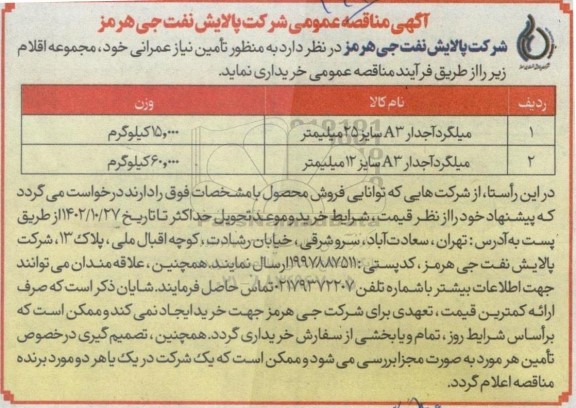 آگهی مناقصه عمومی شرکت پالایش نفت جی هرمز
شرکت پالایش نفت جی هرمز در نظر دارد به منظور تأمین نیاز عمرانی خود، مجموعه اقلام
زیر را از طریق فرآیند مناقصه عمومی خریداری نماید.
ردیف نام کالا وزن
۱ میلگرد آجدار A3 سایز ۲۵ میلیمتر ۱۵,۰۰۰ کیلوگرم
۲ میلگرد آجدار A3 سایز ۱۲ میلیمتر ۶۰,۰۰۰ کیلوگرم
در این راستا، از شرکت هایی که توانایی فروش محصول با مشخصات فوق را دارند درخواست می گردد
که پیشنهاد خود را از نظر قیمت، شرایط خرید و موعد تحویل حداکثر تا تاریخ ۱۴۰۲/۱۰/۲۷ از طریق
پست به آدرس: تهران، سعادت آباد، سرو شرقی، خیابان رشادت، کوچه اقبال ملی، پلاک ۱۳، شرکت
پالایش نفت جی هرمز، کدپستی: ۱۹۹۷۸۸۷۵۱۱ ارسال نمایند. همچنین، علاقه مندان می توانند
جهت اطلاعات بیشتر با شماره تلفن ۰۲۱۷۹۳۷۲۲۰۷ تماس حاصل فرمایند. شایان ذکر است که صرف
ارائه کمترین قیمت، تعهدی برای شرکت جی هرمز جهت خرید ایجاد نمی کند و ممکن است که
براساس شرایط روز، تمام و یا بخشی از سفارش خریداری گردد. همچنین، تصمیم گیری درخصوص
تأمین هر مورد به صورت مجزا بررسی می شود و ممکن است که یک شرکت در یک یا هر دو مورد برنده
مناقصه اعلام گردد.